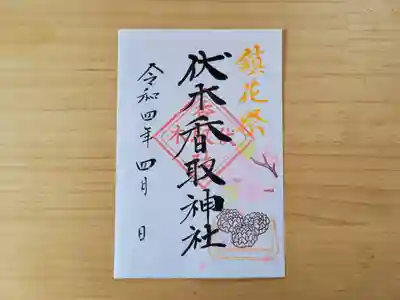 鎮花祭
伏木香取神社
令和四年 四月 日